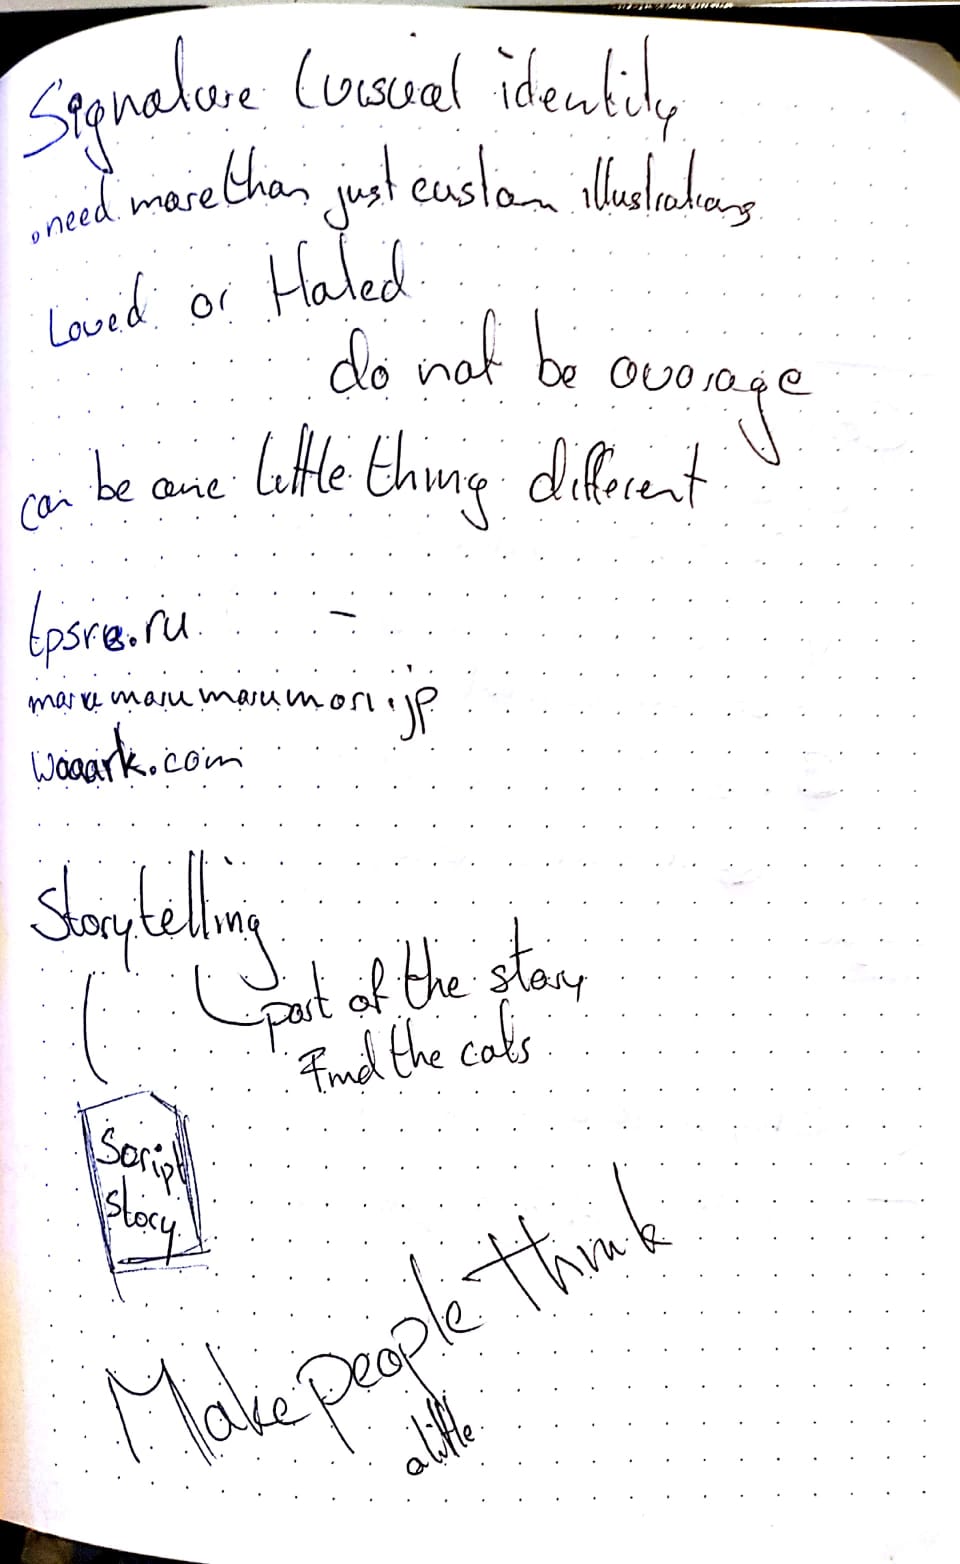 Signature (visual identity
need more than just custom illustrations
Loved or Hated
do not be average
can be one little thing different
tpsre.ru -
marumarumarumori.jp
waaark.com
Storytelling
part of the story
Find the cats
Script
story
Make people think
a little